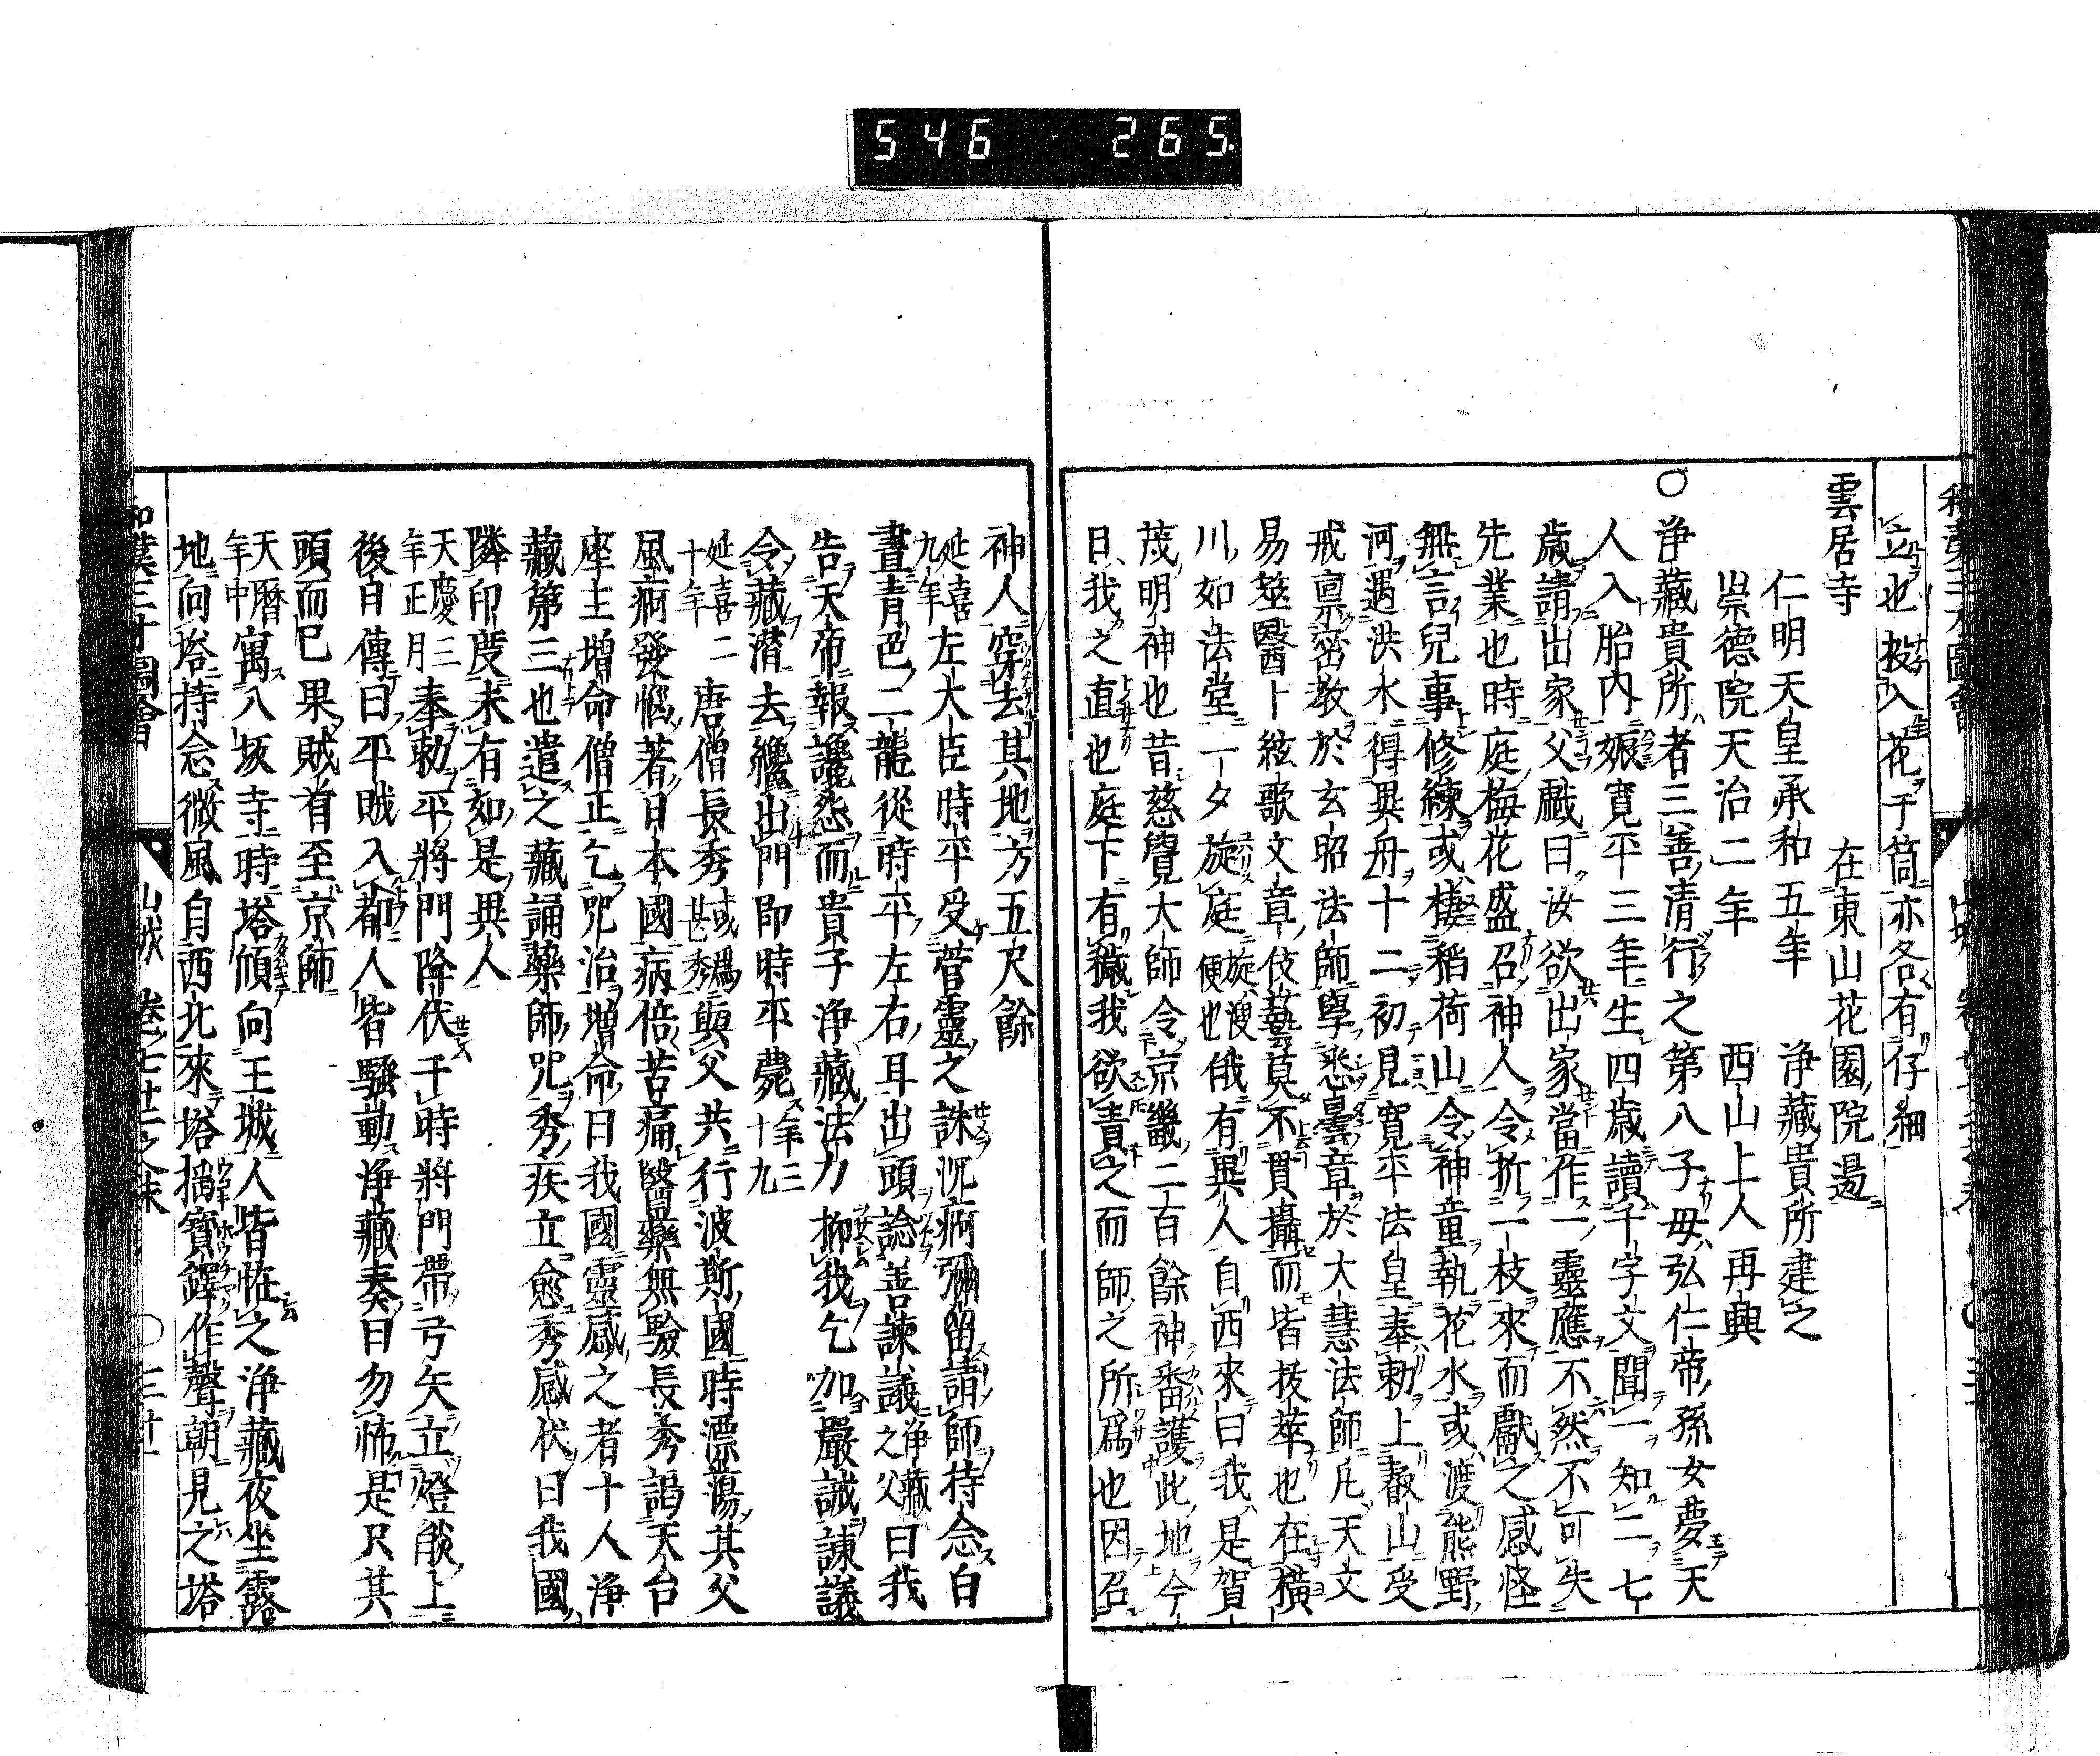 546 265
立也投入花于筒亦各有仔細
雲居寺 在東山花園院邊
仁明天皇承和五年 浄藏貴所建之
崇德院天治二年 西山上人再興
○浄藏貴所者三善清行之第八子母弘仁帝孫女夢天
人入胎內娠寛平三年生四歳讀千字文聞一知二七
歳請出家父戲曰汝欲出家當作一靈應不然不可失
先業也時庭梅花盛召神人令折一枝來而獻之感怪
無言兒事修練或棲稻荷山令神童執花水或渡熊野
河遇洪水得異舟十二初見寛平法皇奉勅上叡山受
戒禀密教於玄昭法師學悉曇章於大慧法師凡天文
易筮醫卜絃歌文章伎藝莫不貫攝而皆拔萃也在橫
川如法堂一夕旋庭旋溲便也俄有異人自西來曰我是賀
茂明神也昔慈覺大師令京畿二百餘神番護此地今
日我之直也庭下有穢我欲責之而師之所爲也因召
神人穿去其地方五尺餘
延喜九年左大臣時平受菅靈之誅沉痾彌留請師持念白
晝青色二龍從時平左右耳出頭諗善諫議浄藏之父曰我
告天帝報讒怨而貴子浄藏法力抑我乞加嚴誡諫議
令藏潛去纔出門即時平薨年三十九
延喜二十年唐僧長秀或爲甚秀與父共行波斯國時漂蕩其父
風痾發惱著日本國病倍苦痛醫藥無驗長秀謁天台
座主增命僧正乞咒治增命曰我國靈感之者十人浄
藏第三也遣之藏誦藥師咒秀疾立愈秀感伏曰我國
隣印度未有如是異人
天慶三年正月奉勅平將門降伏于時將門帶弓矢立燈燄上
後日傳曰平賊入都人皆騷動浄藏奏曰勿怖是只其
頭而已果賊首至京師
天曆年中寓八坂寺時塔傾向王城人皆恠之浄藏夜坐露
地向塔持念微風自西北來塔搖寶鐸作聲朝見之塔
和漢三才圖會 山城 卷ノ七十二之末 ○三十一